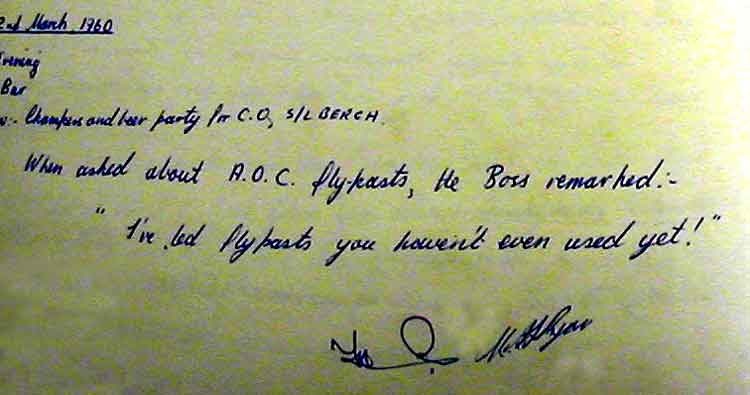 2nd March, 1960
Evening
Bar
:- Champers and beer party for C.O, S/L BERCH.
When asked about A.O.C. fly-pasts, the Boss remarked:-
" I've led flypasts you haven't even used yet! "